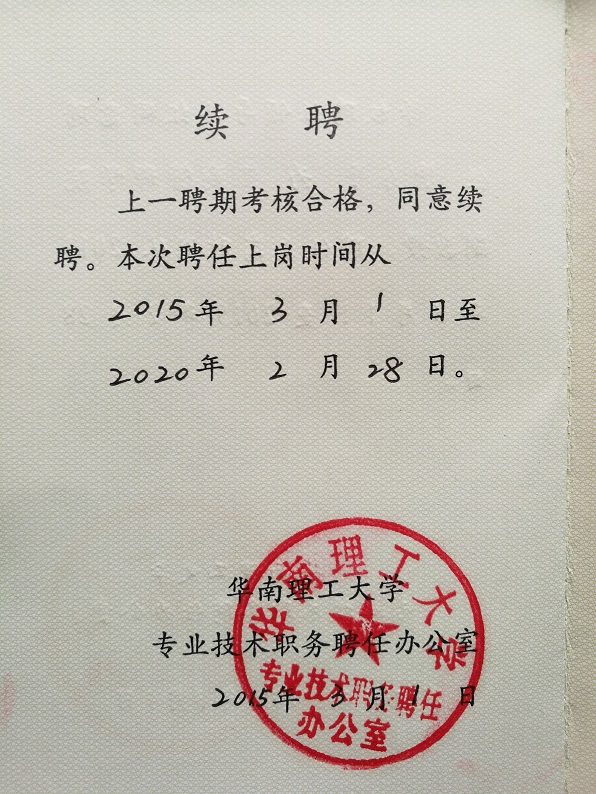 续 聘
上一聘期考核合格，同意续
聘。本次聘任上岗时间从
2015年 3 月 1 日至
2020年 2 月 28 日。
华南理工大学
专业技术职务聘任办公室
2015年 3 月 1 日
华南理工大学
专业技术职务聘任
办公室